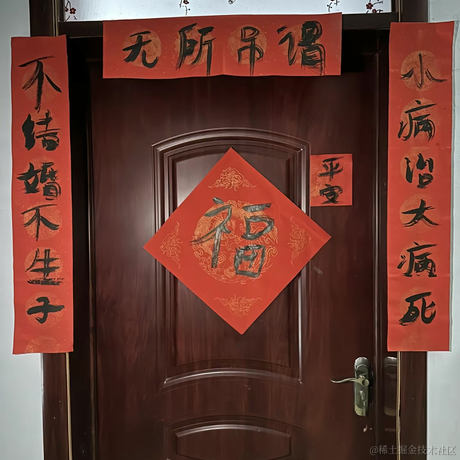 无所吊谓
不结婚不生子
小病治大病死
福
平安
@稀土掘金技术社区